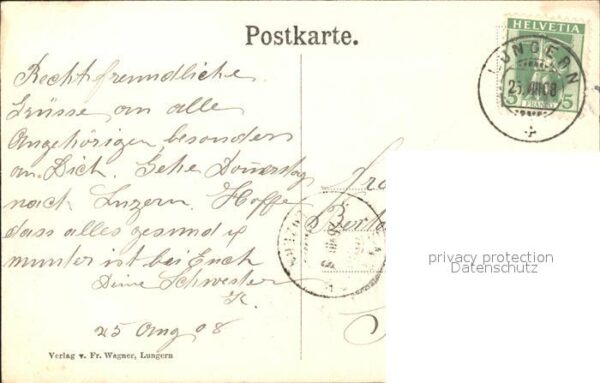 Postkarte.
HELVETIA
5 FRANCO 5
LUNGERN
25.VIII.08
Recht freundliche
Grüsse an alle
Angehörigen, besonders
an Dich. Gehe Donnerstag
nach Luzern. Hoffe
dass alles gesund &
munter ist bei Euch
Deine Schwester
K.
25 Aug 08
Verlag v. Fr. Wagner, Lungern
Fra
Berta
privacy protection
Datenschutz